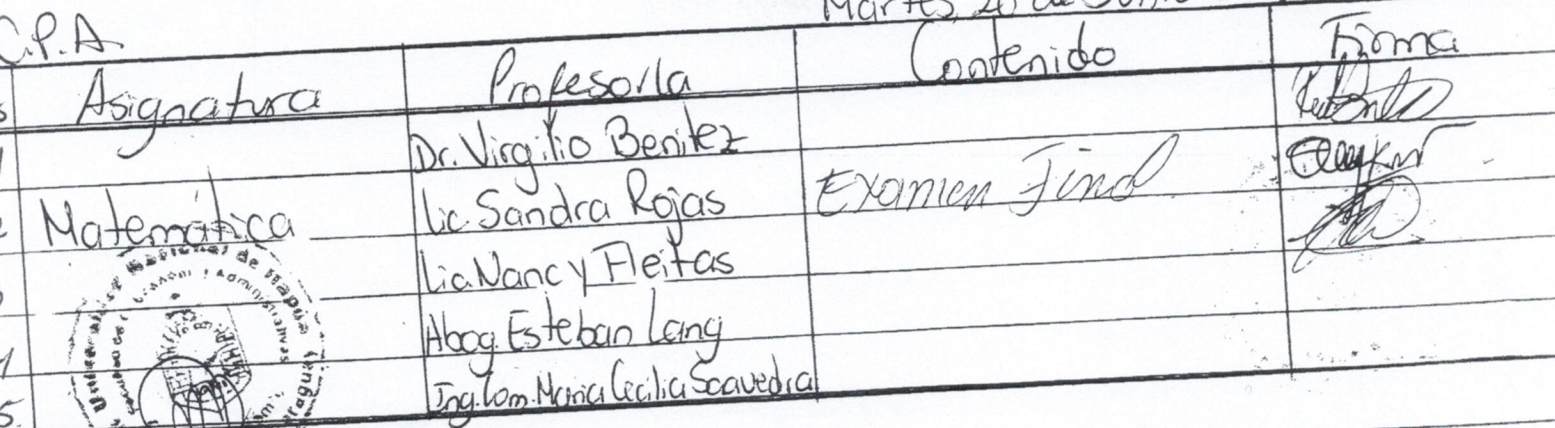 C.P.A.
Martes, 20 de Junio
Asignatura Profesor/a Contenido Firma
Dr. Virgilio Benitez
Matemática Lic. Sandra Rojas Examen Final
Lic. Nancy Fleitas
Abog. Esteban Lang
5. Ing. Com. Maria Cecilia Saavedra
Nacional de Itapúa